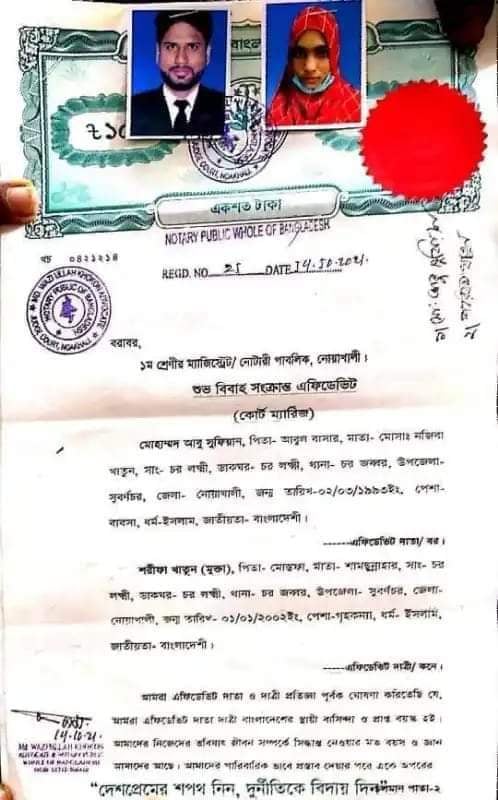 বাংলা
২১০
একশত টাকা
NOTARY PUBLIC WHOLE OF BANGLADESH
খচ ০৪২১২১৪
REGD. NO 21 DATE 14.10.2021.
MD. WAZI ULLAH KHOKON ADVOCATE
NOTARY PUBLIC OF BANGLADESH
JUDGE COURT, NOAKHALI
বরাবর,
১ম শ্রেণীর ম্যাজিস্ট্রেট/ নোটারী পাবলিক, নোয়াখালী।
শুভ বিবাহ সংক্রান্ত এফিডেভিট
(কোর্ট ম্যারিজ)
মোহাম্মদ আবু সুফিয়ান, পিতা- আবুল বাসার, মাতা- মোসাঃ নজিবা
খাতুন, সাং- চর লক্ষ্মী, ডাকঘর- চর লক্ষ্মী, থানা- চর জব্বর, উপজেলা-
সুবর্ণচর, জেলা- নোয়াখালী, জন্ম তারিখ-০২/০৩/১৯৯৩ইং, পেশা-
ব্যবসা, ধর্ম-ইসলাম, জাতীয়তা- বাংলাদেশী।
------এফিডেভিট দাতা/ বর।
শরীফা খাতুন (মুক্তা), পিতা- মোস্তফা, মাতা- শামছুন্নাহার, সাং- চর
লক্ষ্মী, ডাকঘর- চর লক্ষ্মী, থানা- চর জব্বর, উপজেলা- সুবর্ণচর, জেলা-
নোয়াখালী, জন্ম তারিখ- ০১/০১/২০০২ইং, পেশা-গৃহকন্যা, ধর্ম- ইসলাম,
জাতীয়তা- বাংলাদেশী।
-----এফিডেভিট দাত্রী/ কনে।
আমরা এফিডেভিট দাতা ও দাত্রী প্রতিজ্ঞা পূর্বক ঘোষণা করিতেছি যে,
আমরা এফিডেভিট দাতা দাত্রী বাংলাদেশের স্থায়ী বাসিন্দা ও প্রাপ্ত বয়স্ক হই।
আমাদের নিজেদের ভবিষ্যৎ জীবন সম্পর্কে সিদ্ধান্ত নেওয়ার মত বয়স ও জ্ঞান
আমাদের আছে। আমাদের পারিবারিক ভাবে প্রস্তাব দেয়ার পরে একে অপরের
14.10.21
MD WAZI ULLAH KHOKON
ADVOCATE & NOTARY PUBLIC
WHOLE OF BANGLADESH
"দেশপ্রেমের শপথ নিন, দুর্নীতিকে বিদায় দিন"
চলমান পাতা-২